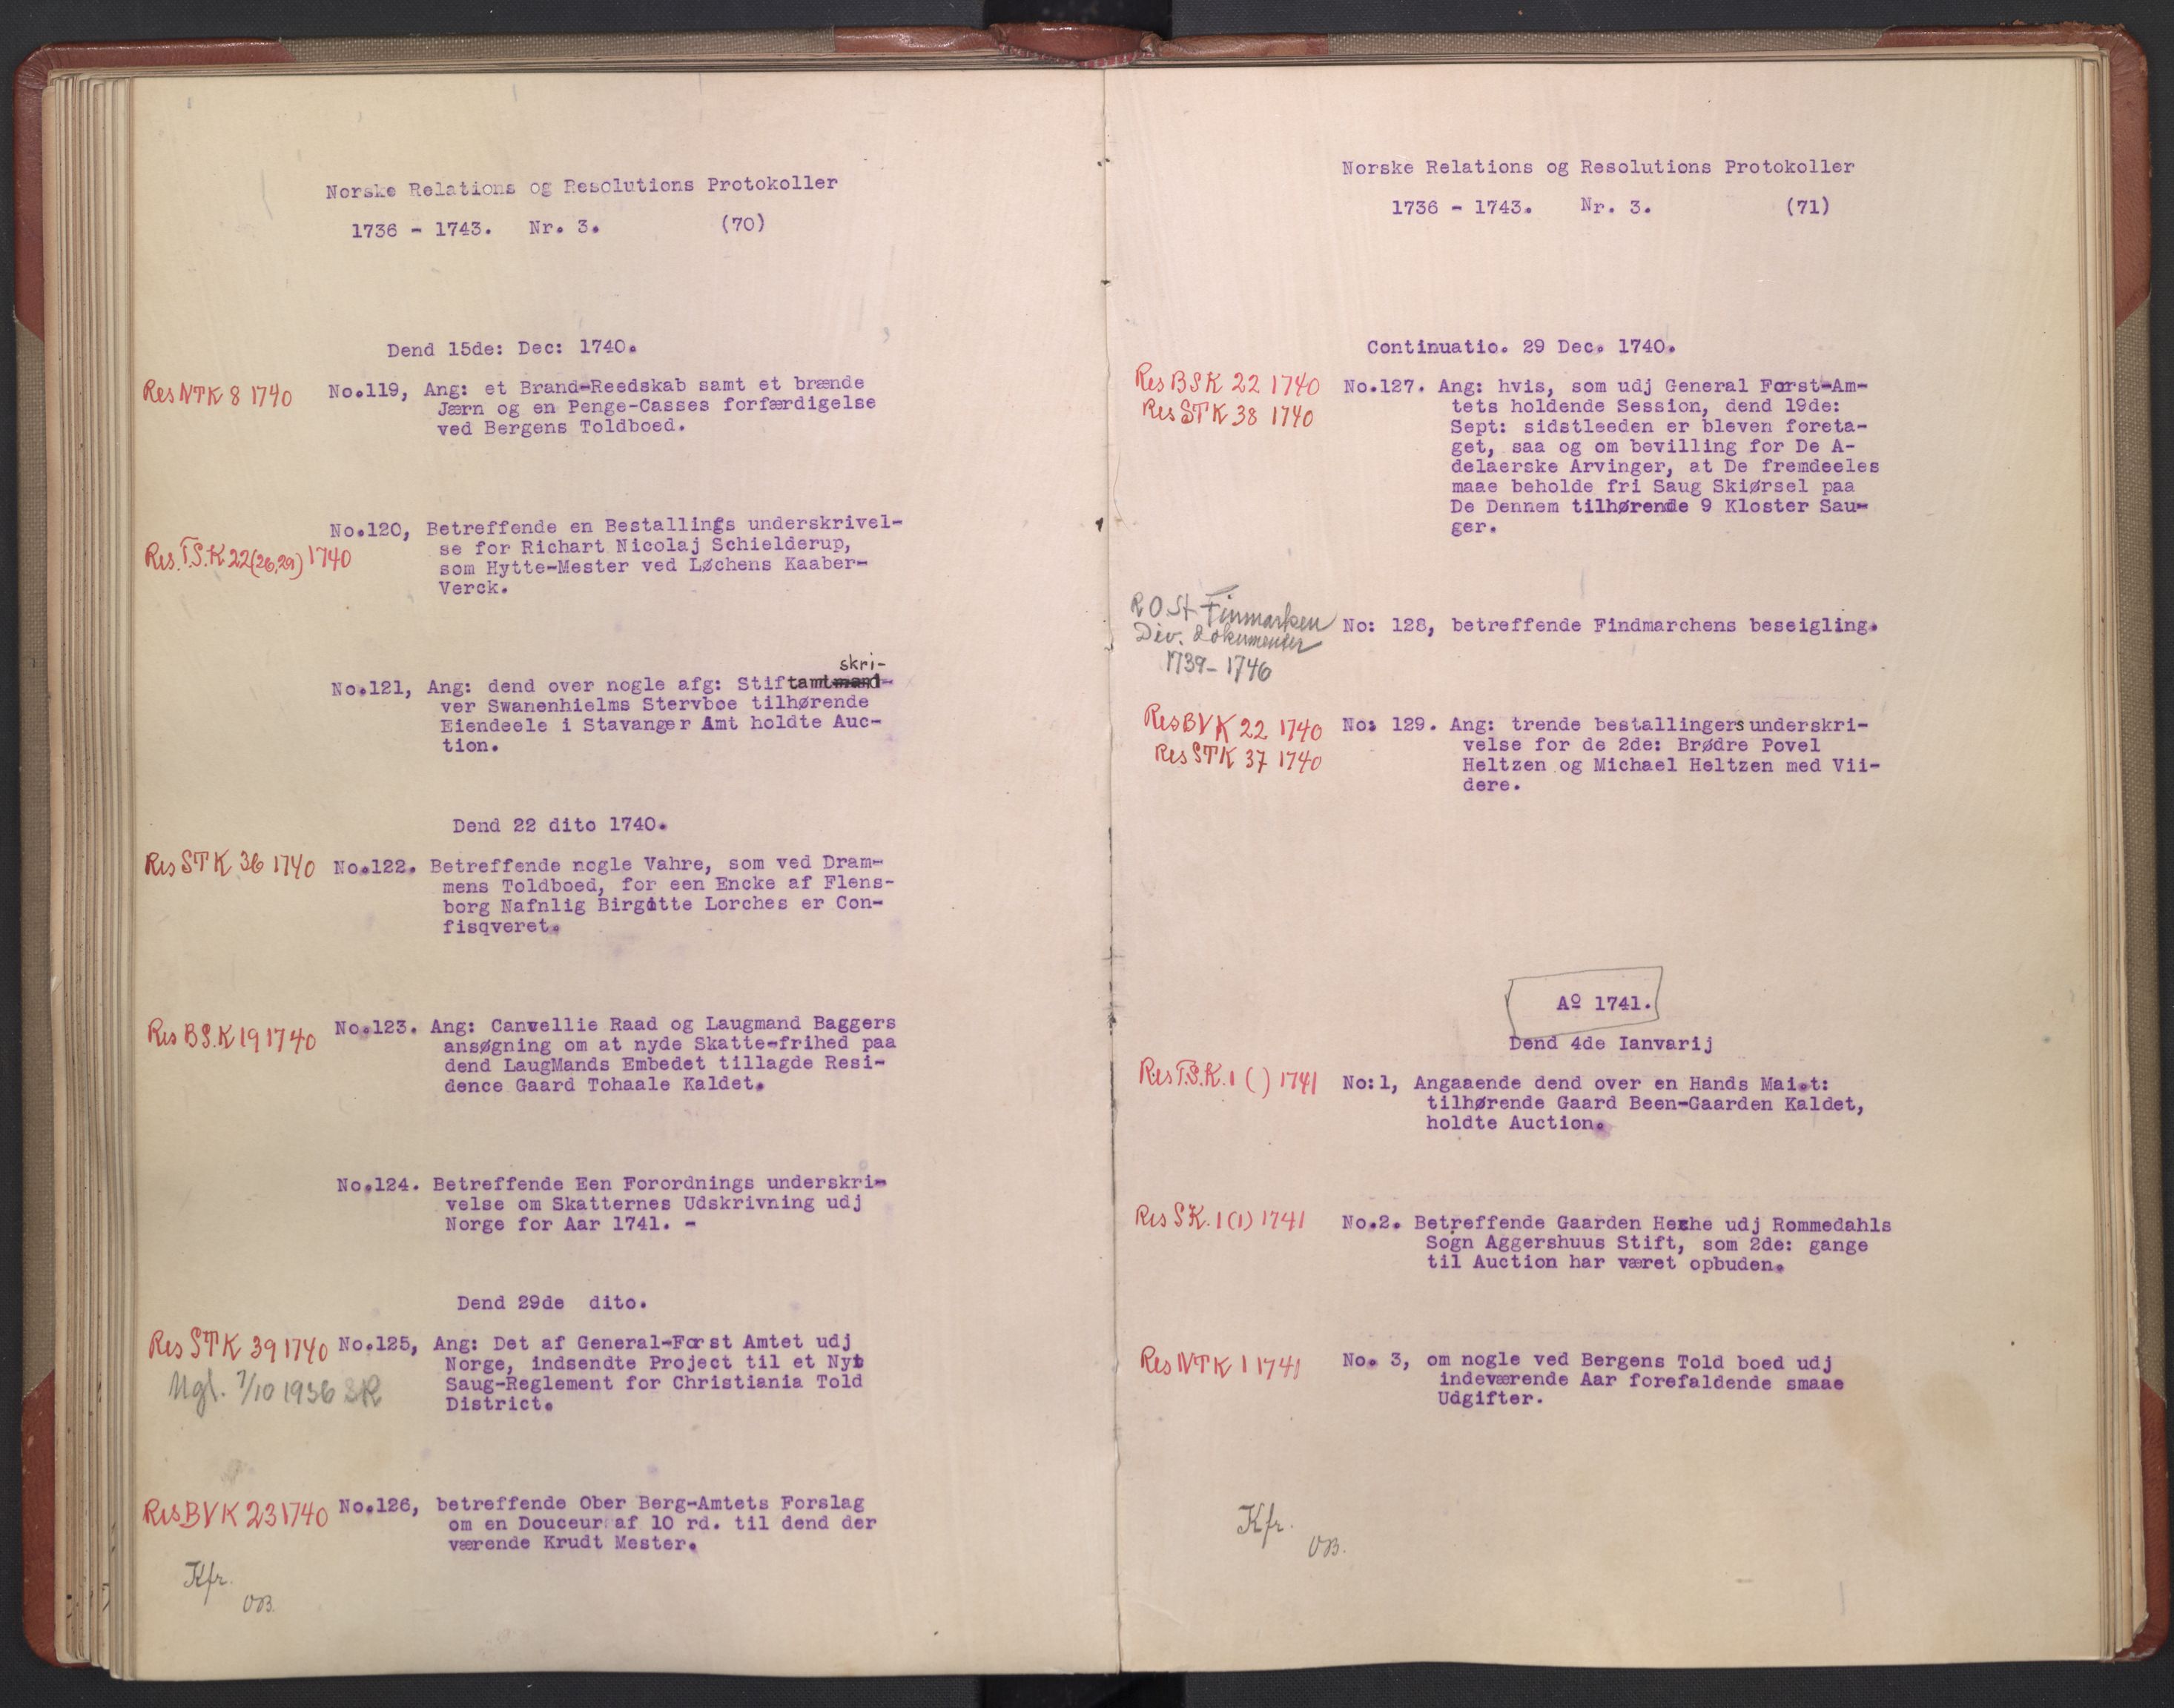 Norske Relations og Resolutions Protokoller
1736 - 1743. Nr. 3. (70)
Dend 15de: Dec: 1740.
Res NTK 8 1740 No.119, Ang: et Brand-Reedskab samt et brænde
Jærn og en Penge-Casses forfærdigelse
ved Bergens Toldboed.
No.120, Betreffende en Bestallings underskrivel-
Res. T.S.K 22(26,29) 1740 se for Richart Nicolaj Schielderup,
som Hytte-Mester ved Løchens Kaaber-
Verck.
skri-
No.121, Ang: dend over nogle afg: Stiftamtmand-
ver Swanenhielms Stervboe tilhørende
Eiendeele i Stavanger Amt holdte Auc-
tion.
Dend 22 dito 1740.
Res STK 36 1740 No.122. Betreffende nogle Vahre, som ved Dram-
mens Toldboed, for een Encke af Flens-
borg Nafnlig Birgitte Lorches er Con-
fisqveret.
Res BS.K 19 1740 No.123. Ang: Canvellie Raad og Laugmand Baggers
ansøgning om at nyde Skatte-frihed paa
dend LaugMands Embedet tillagde Resi-
dence Gaard Tohaale Kaldet.
No.124. Betreffende Een Forordnings underskri-
velse om Skatternes Udskrivning udj
Norge for Aar 1741. -
Dend 29de dito.
Res STK 39 1740 No.125, Ang: Det af General-Forst Amtet udj
Norge, indsendte Project til et Nyt
Ugl. 7/10 1936 SR Saug-Reglement for Christiania Told
District.
Res BVK 23 1740 No.126, betreffende Ober Berg-Amtets Forslag
om en Douceur af 10 rd. til dend der
værende Krudt Mester.
Kfr.
OB.
Norske Relations og Resolutions Protokoller
1736 - 1743. Nr. 3. (71)
Continuatio. 29 Dec. 1740.
Res BSK 22 1740 No.127. Ang: hvis, som udj General Forst-Am-
Res STK 38 1740 tets holdende Session, dend 19de:
Sept: sidstleeden er bleven foreta-
get, saa og om bevilling for De A-
delaerske Arvinger, at De fremdeeles
maae beholde fri Saug Skiørsel paa
De Dennem tilhørende 9 Kloster Sau-
ger.
R O. St Finmarken
No: 128, betreffende Findmarchens beseigling.
Div. Dokumenter
1739-1746
Res BVK 22 1740 No: 129. Ang: trende bestallingers underskri-
velse for de 2de: Brødre Povel
Res STK 37 1740 Heltzen og Michael Heltzen med Vii-
dere.
Aº 1741.
Dend 4de Ianvarij
Res T.S.K. 1 ( ) 1741 No:1, Angaaende dend over en Hands Maiet:
tilhørende Gaard Been-Gaarden Kaldet,
holdte Auction.
Res SK. 1(1) 1741 No.2. Betreffende Gaarden udj Rommedahls
Sogn Aggershuus Stift, som 2de: gange
til Auction har været opbuden.
Res NTK 1 1741 No. 3, om nogle ved Bergens Told boed udj
indeværende Aar forefaldende smaae
Udgifter.
Kfr.
OB.